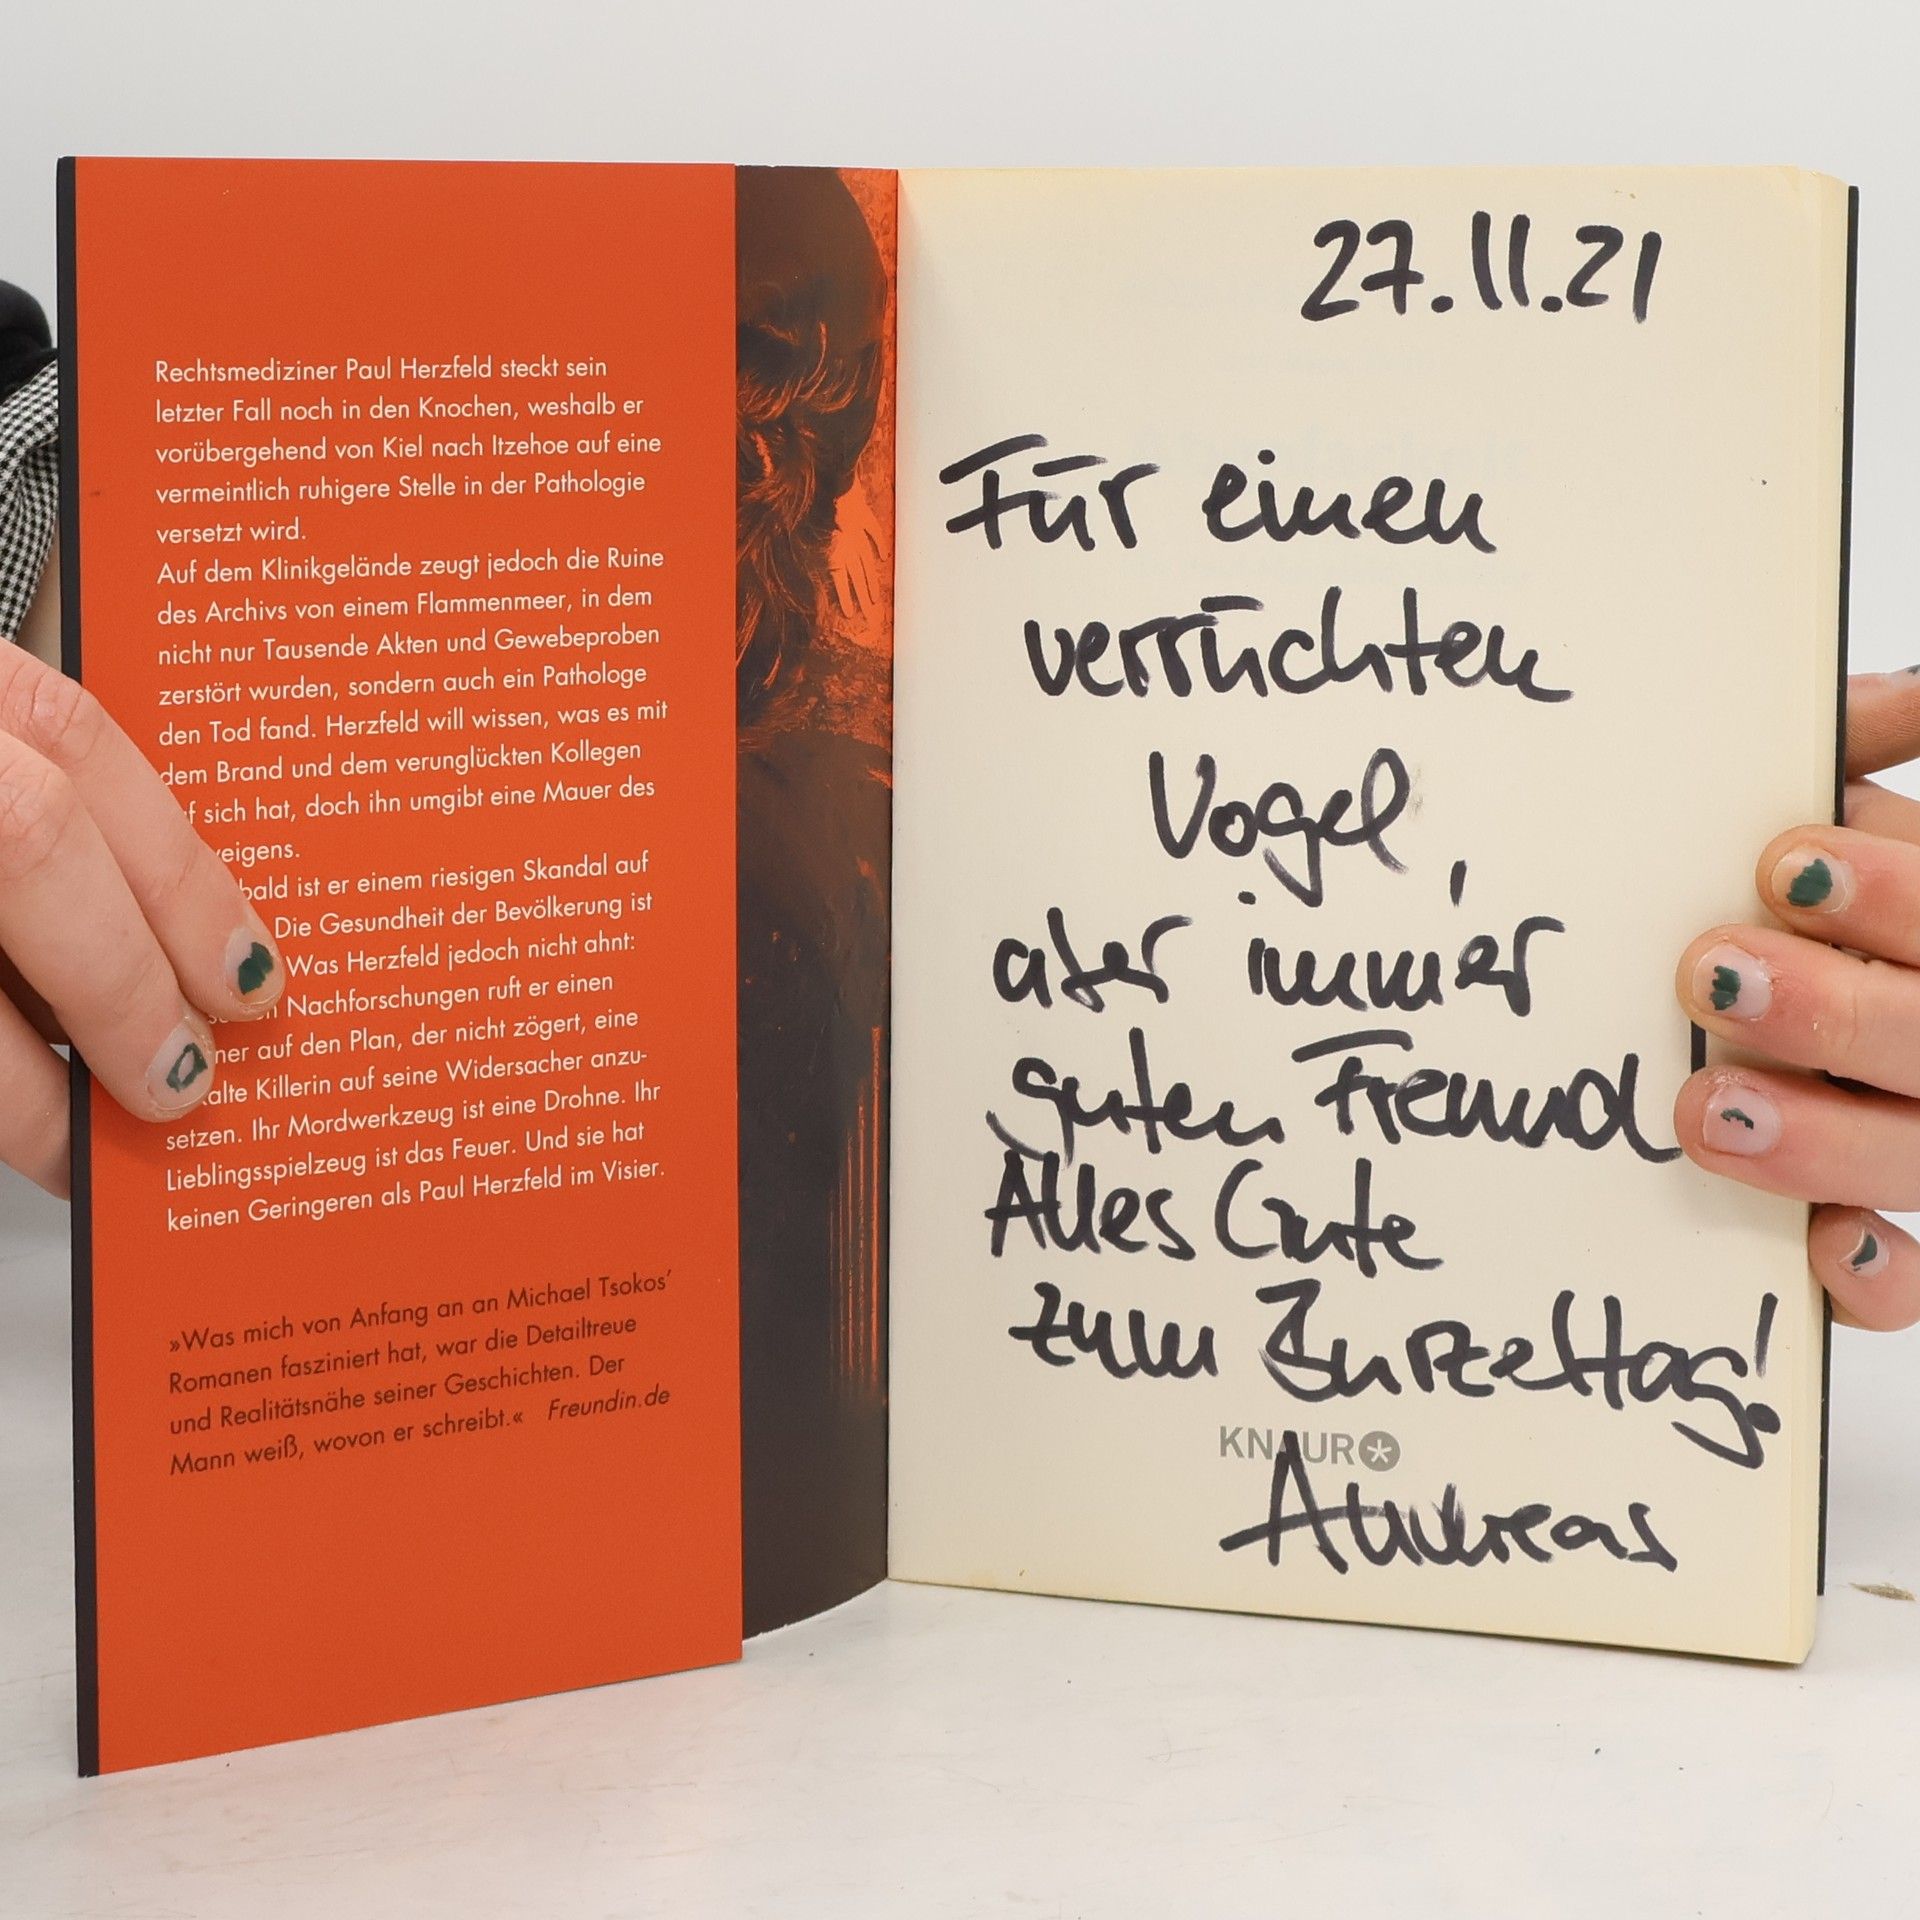 Rechtsmediziner Paul Herzfeld steckt sein
letzter Fall noch in den Knochen, weshalb er
vorübergehend von Kiel nach Itzehoe auf eine
vermeintlich ruhigere Stelle in der Pathologie
versetzt wird.
Auf dem Klinikgelände zeugt jedoch die Ruine
des Archivs von einem Flammenmeer, in dem
nicht nur Tausende Akten und Gewebeproben
zerstört wurden, sondern auch ein Pathologe
den Tod fand. Herzfeld will wissen, was es mit
dem Brand und dem verunglückten Kollegen
f sich hat, doch ihn umgibt eine Mauer des
eigens.
bald ist er einem riesigen Skandal auf
Die Gesundheit der Bevölkerung ist
Was Herzfeld jedoch nicht ahnt:
Nachforschungen ruft er einen
ner auf den Plan, der nicht zögert, eine
alte Killerin auf seine Widersacher anzu-
setzen. Ihr Mordwerkzeug ist eine Drohne. Ihr
Lieblingsspielzeug ist das Feuer. Und sie hat
keinen Geringeren als Paul Herzfeld im Visier.
»Was mich von Anfang an an Michael Tsokos’
Romanen fasziniert hat, war die Detailtreue
und Realitätsnähe seiner Geschichten. Der
Mann weiß, wovon er schreibt.« Freundin.de
27.11.21
Für einen
verrückten
Vogel,
aber immer
guten Freund
Alles Gute
zum Burzeltag!
KNAUR
Andreas